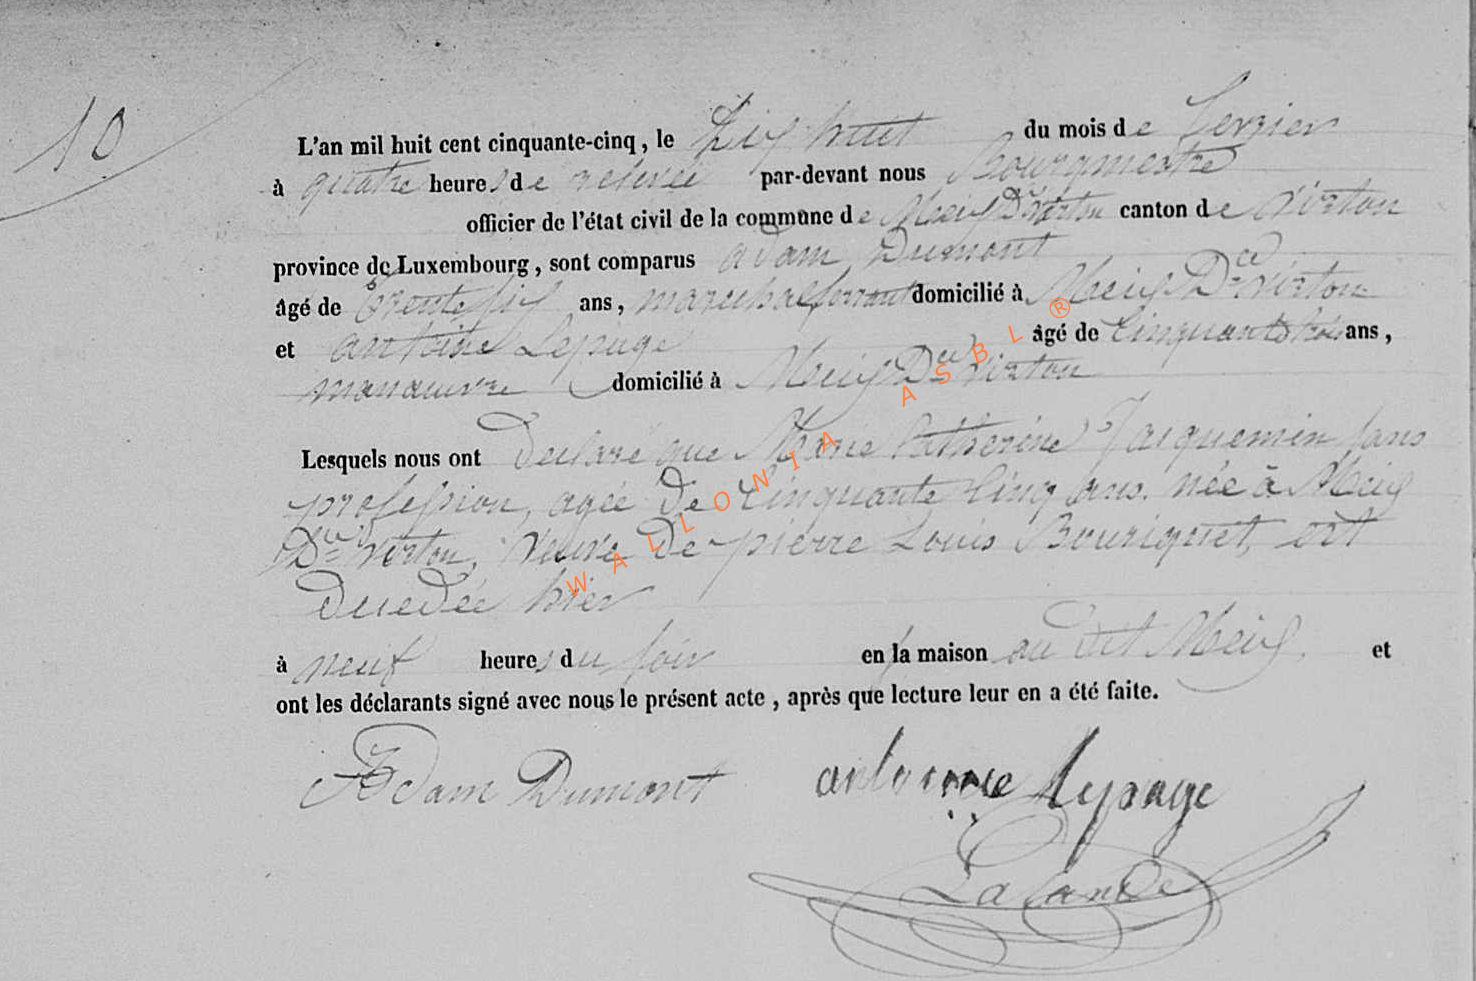 10
L'an mil huit cent cinquante-cinq, le dix huit du mois de fevrier
à quatre heures de relevée par-devant nous Bourgmestre
officier de l'état civil de la commune de Meix Dt Virton canton de Virton
province de Luxembourg, sont comparus adam Dumont
âgé de trente six ans, marechal ferrant domicilié à Meix Dt Virton
et antoine Lepage âgé de Cinquante ans,
manœuvre domicilié à Meix Dt Virton
Lesquels nous ont declaré que Marie Catherine Jacquemin sans
profession, agée de Cinquante Cinq ans. née à Meix
Dt Virton, veuve de pierre Louis Bouriquet, est
decedée hier
à neuf heures du soir en la maison au dit Meix. et
ont les déclarants signé avec nous le présent acte, après que lecture leur en a été faite.
Adam Dumont antoinne lepage
Lalande
WALLONIA ASBL ®